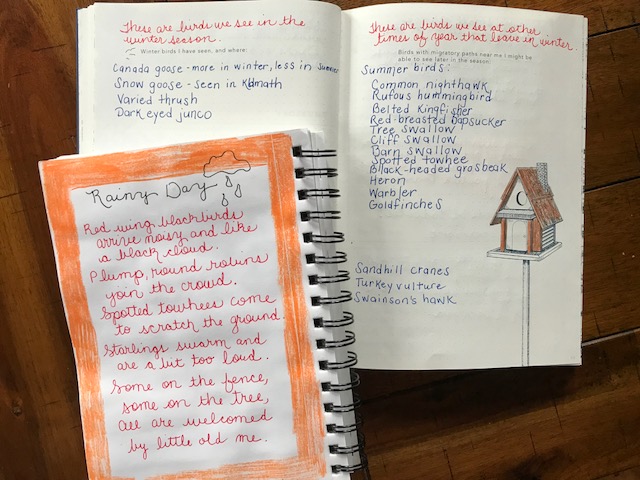 These are birds we see in the
winter season.
Winter birds I have seen, and where:
Canada goose - more in winter, less in summer
Snow goose - seen in Klamath
Varied thrush
Dark eyed junco
These are birds we see at other
times of year that leave in winter.
Birds with migratory paths near me I might be
able to see later in the season:
Summer birds:
Common nighthawk
Rufous hummingbird
Belted Kingfisher
Red-breasted Sapsucker
Tree swallow
Cliff swallow
Barn swallow
Spotted towhee
Black-headed grosbeak
Heron
Warbler
Goldfinches
Sandhill cranes
Turkey vulture
Swainson's hawk
Rainy Day
Red wing blackbirds
arrive noisy and like
a black cloud.
Plump, round robins
join the crowd.
Spotted towhees come
to scratch the ground.
Starlings swarm and
are a bit too loud.
Some on the fence,
some on the tree,
all are welcomed
by little old me.